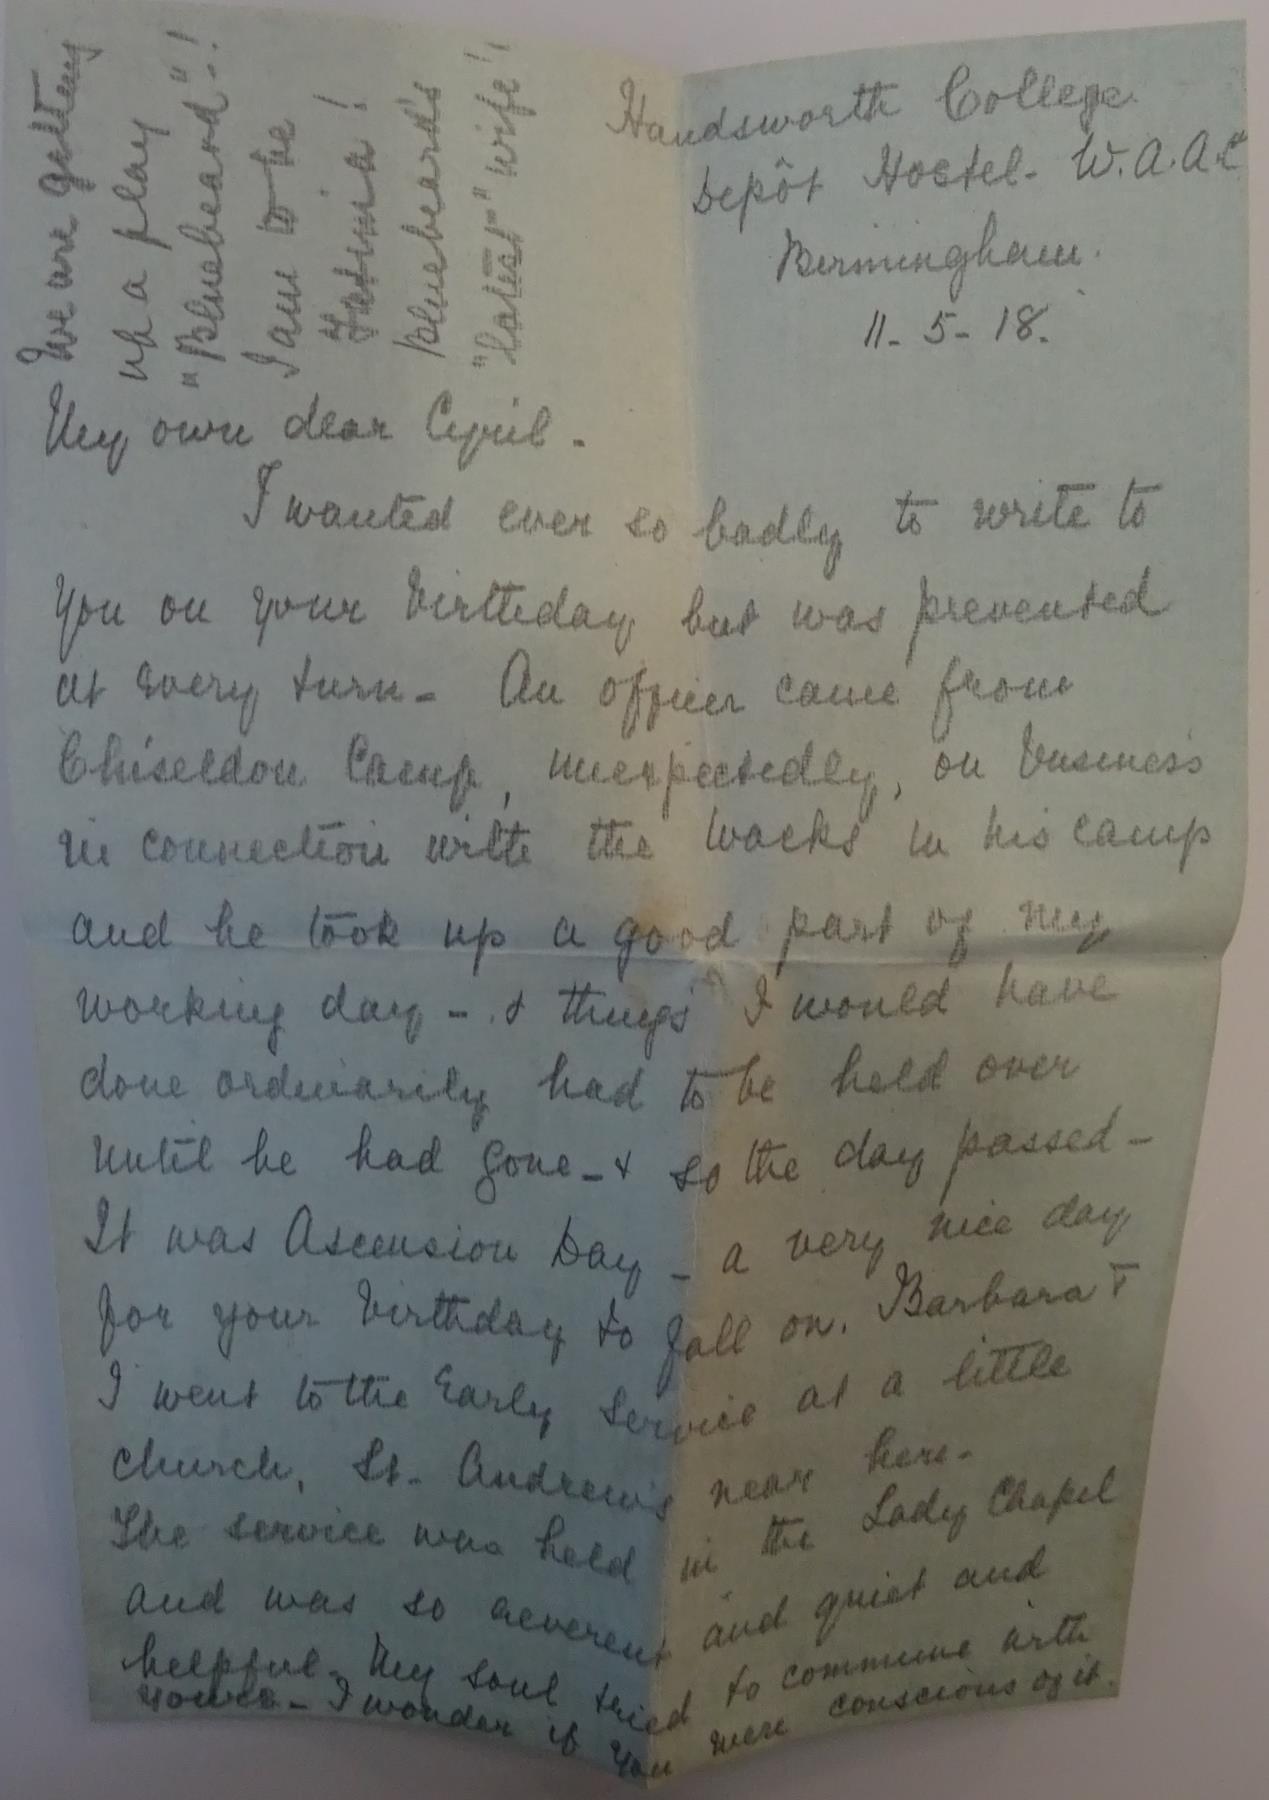 Handsworth College
Depôt Hostel - W.A.A.C
Birmingham.
11 - 5 - 18.
We are getting
up a play
"Bluebeard"!!
I am to be
Fatima!
Bluebeard's
"latest" wife!
My own dear Cyril -
I wanted ever so badly to write to
you on your birthday but was prevented
at every turn - An officer came from
Chiseldon Camp, unexpectedly, on business
in connection with the Waacks in his camp
and he took up a good part of my
working day - & things I would have
done ordinarily had to be held over
until he had gone - & so the day passed -
It was Ascension Day - a very nice day
for your birthday to fall on. Barbara &
I went to the Early Service at a little
church, St. Andrew's near here -
The service was held in the Lady Chapel
and was so reverent and quiet and
helpful - My soul tried to commune with
yours - I wonder if you were conscious of it.